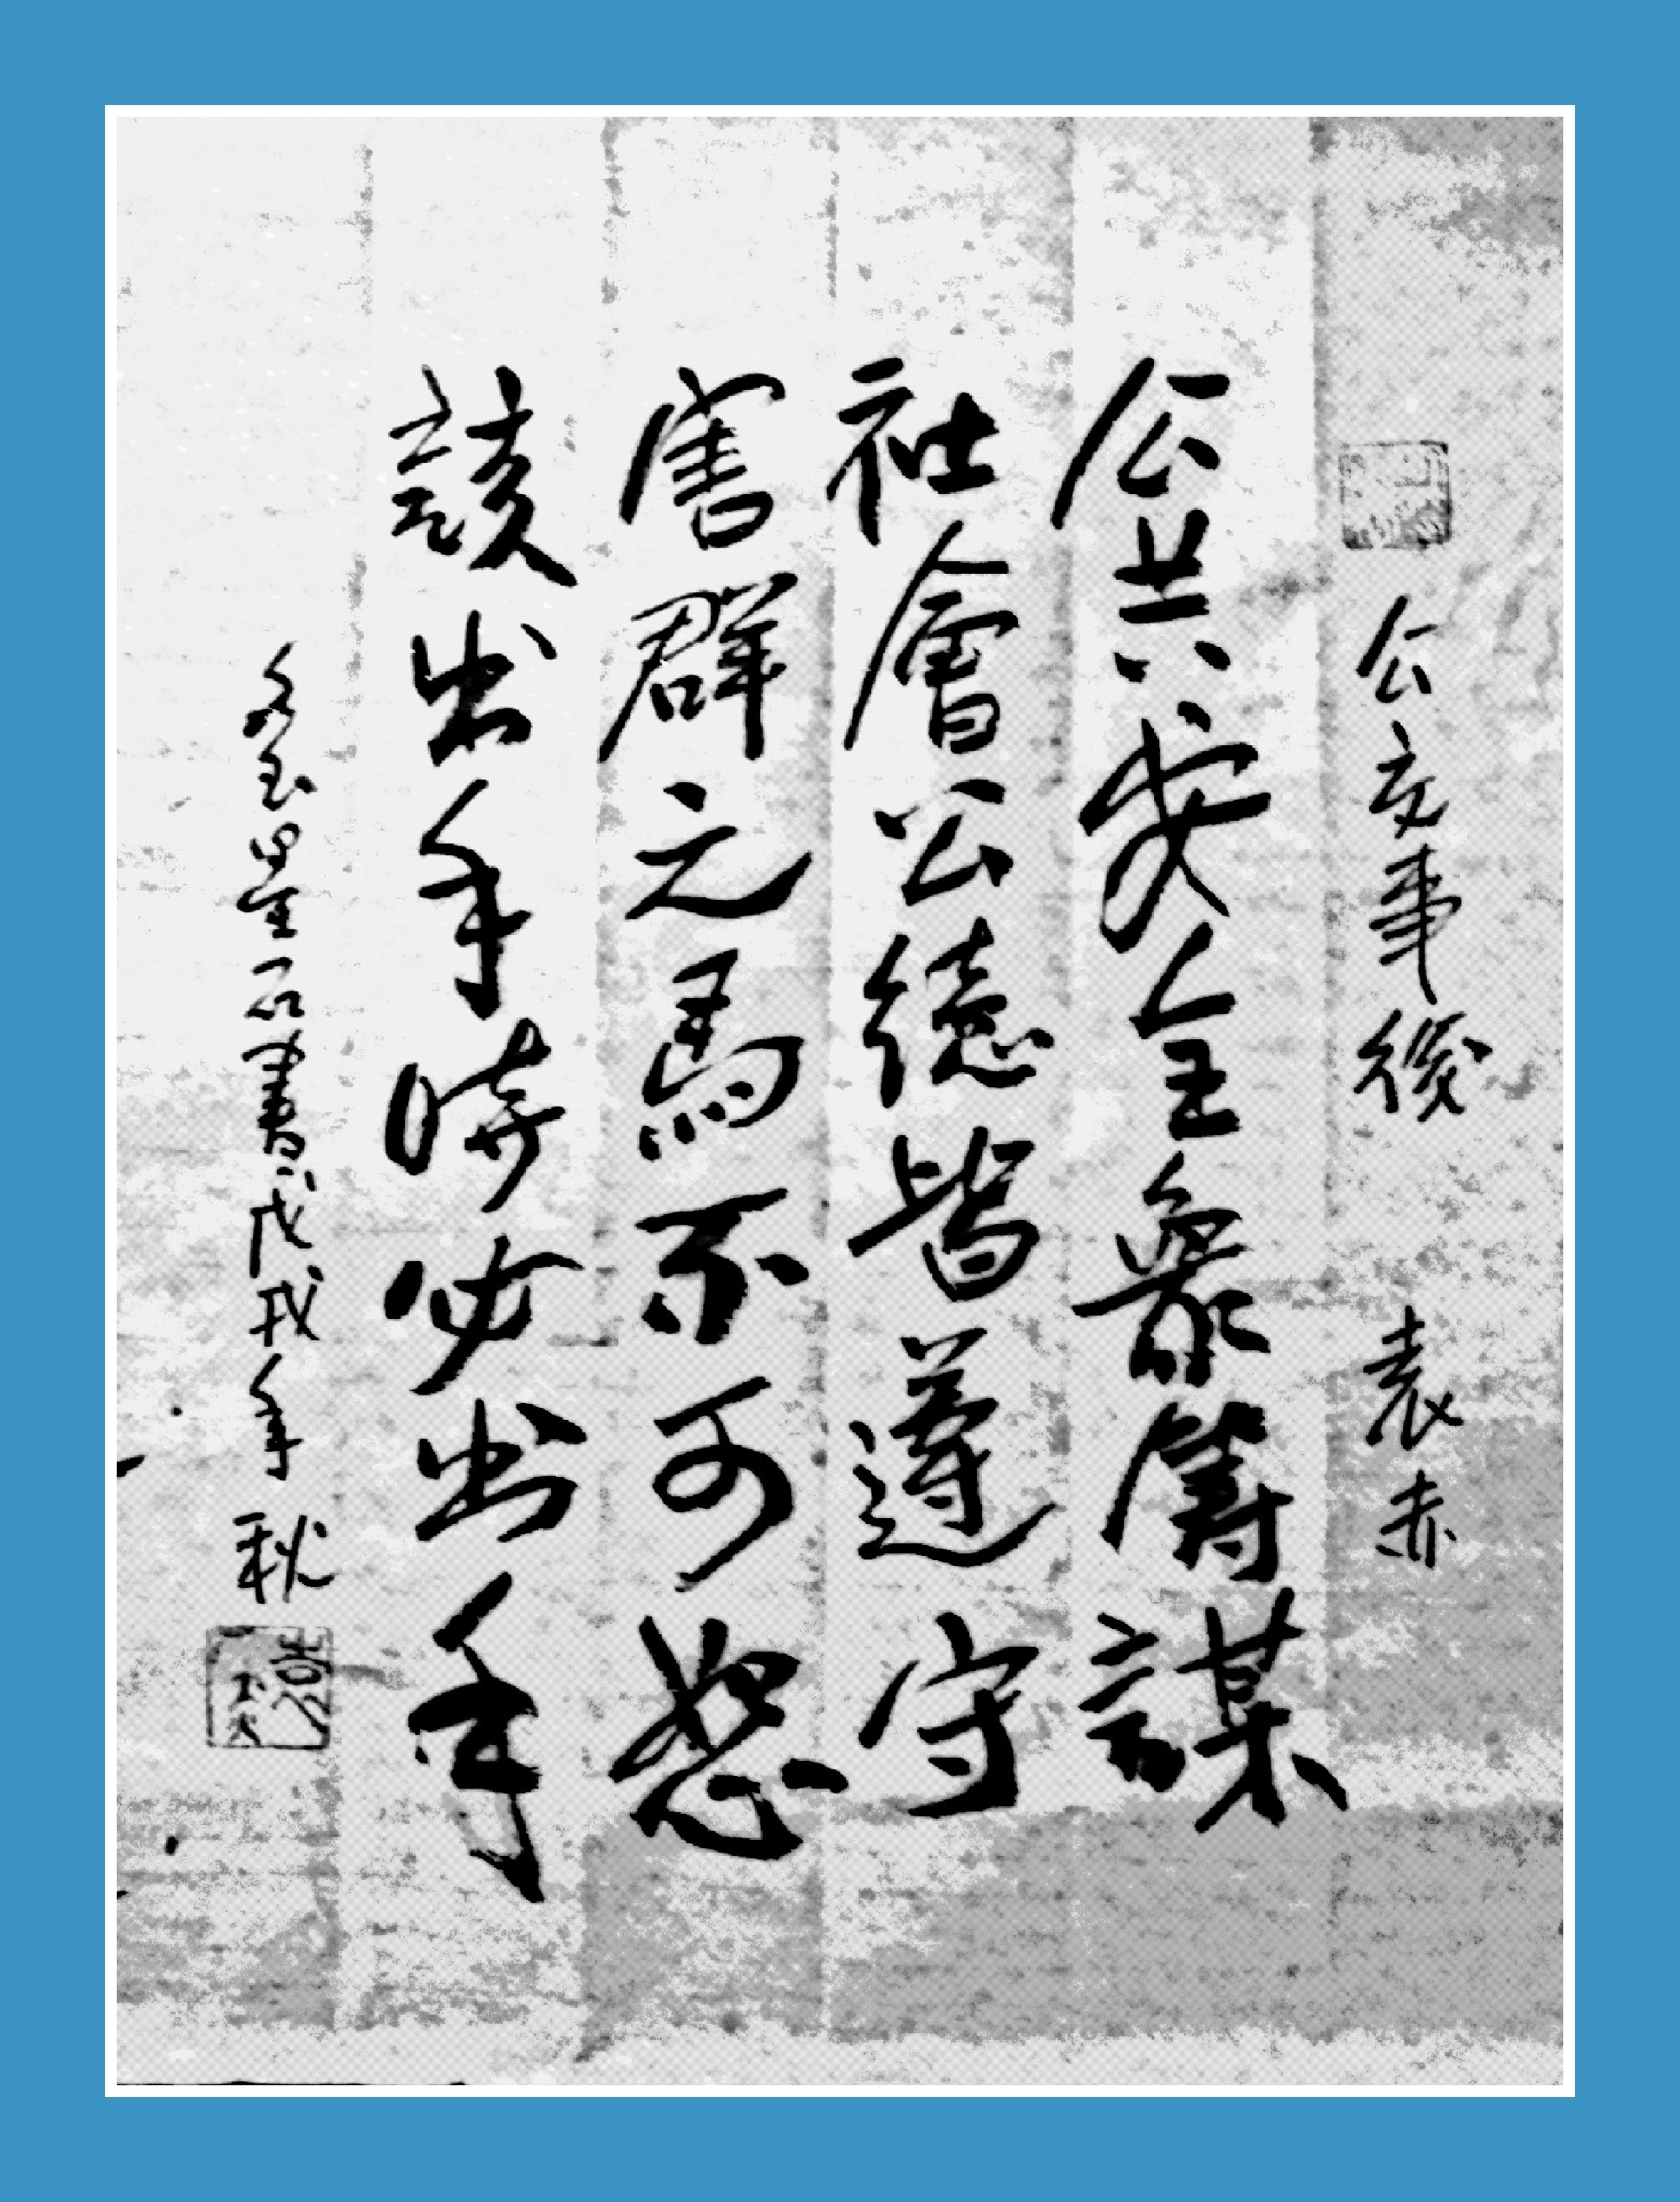 公交事後 袁赤
公共安全衆籌謀
社會公德皆遵守
害群之馬不可恕
該出手時必出手
石書戊戌年秋